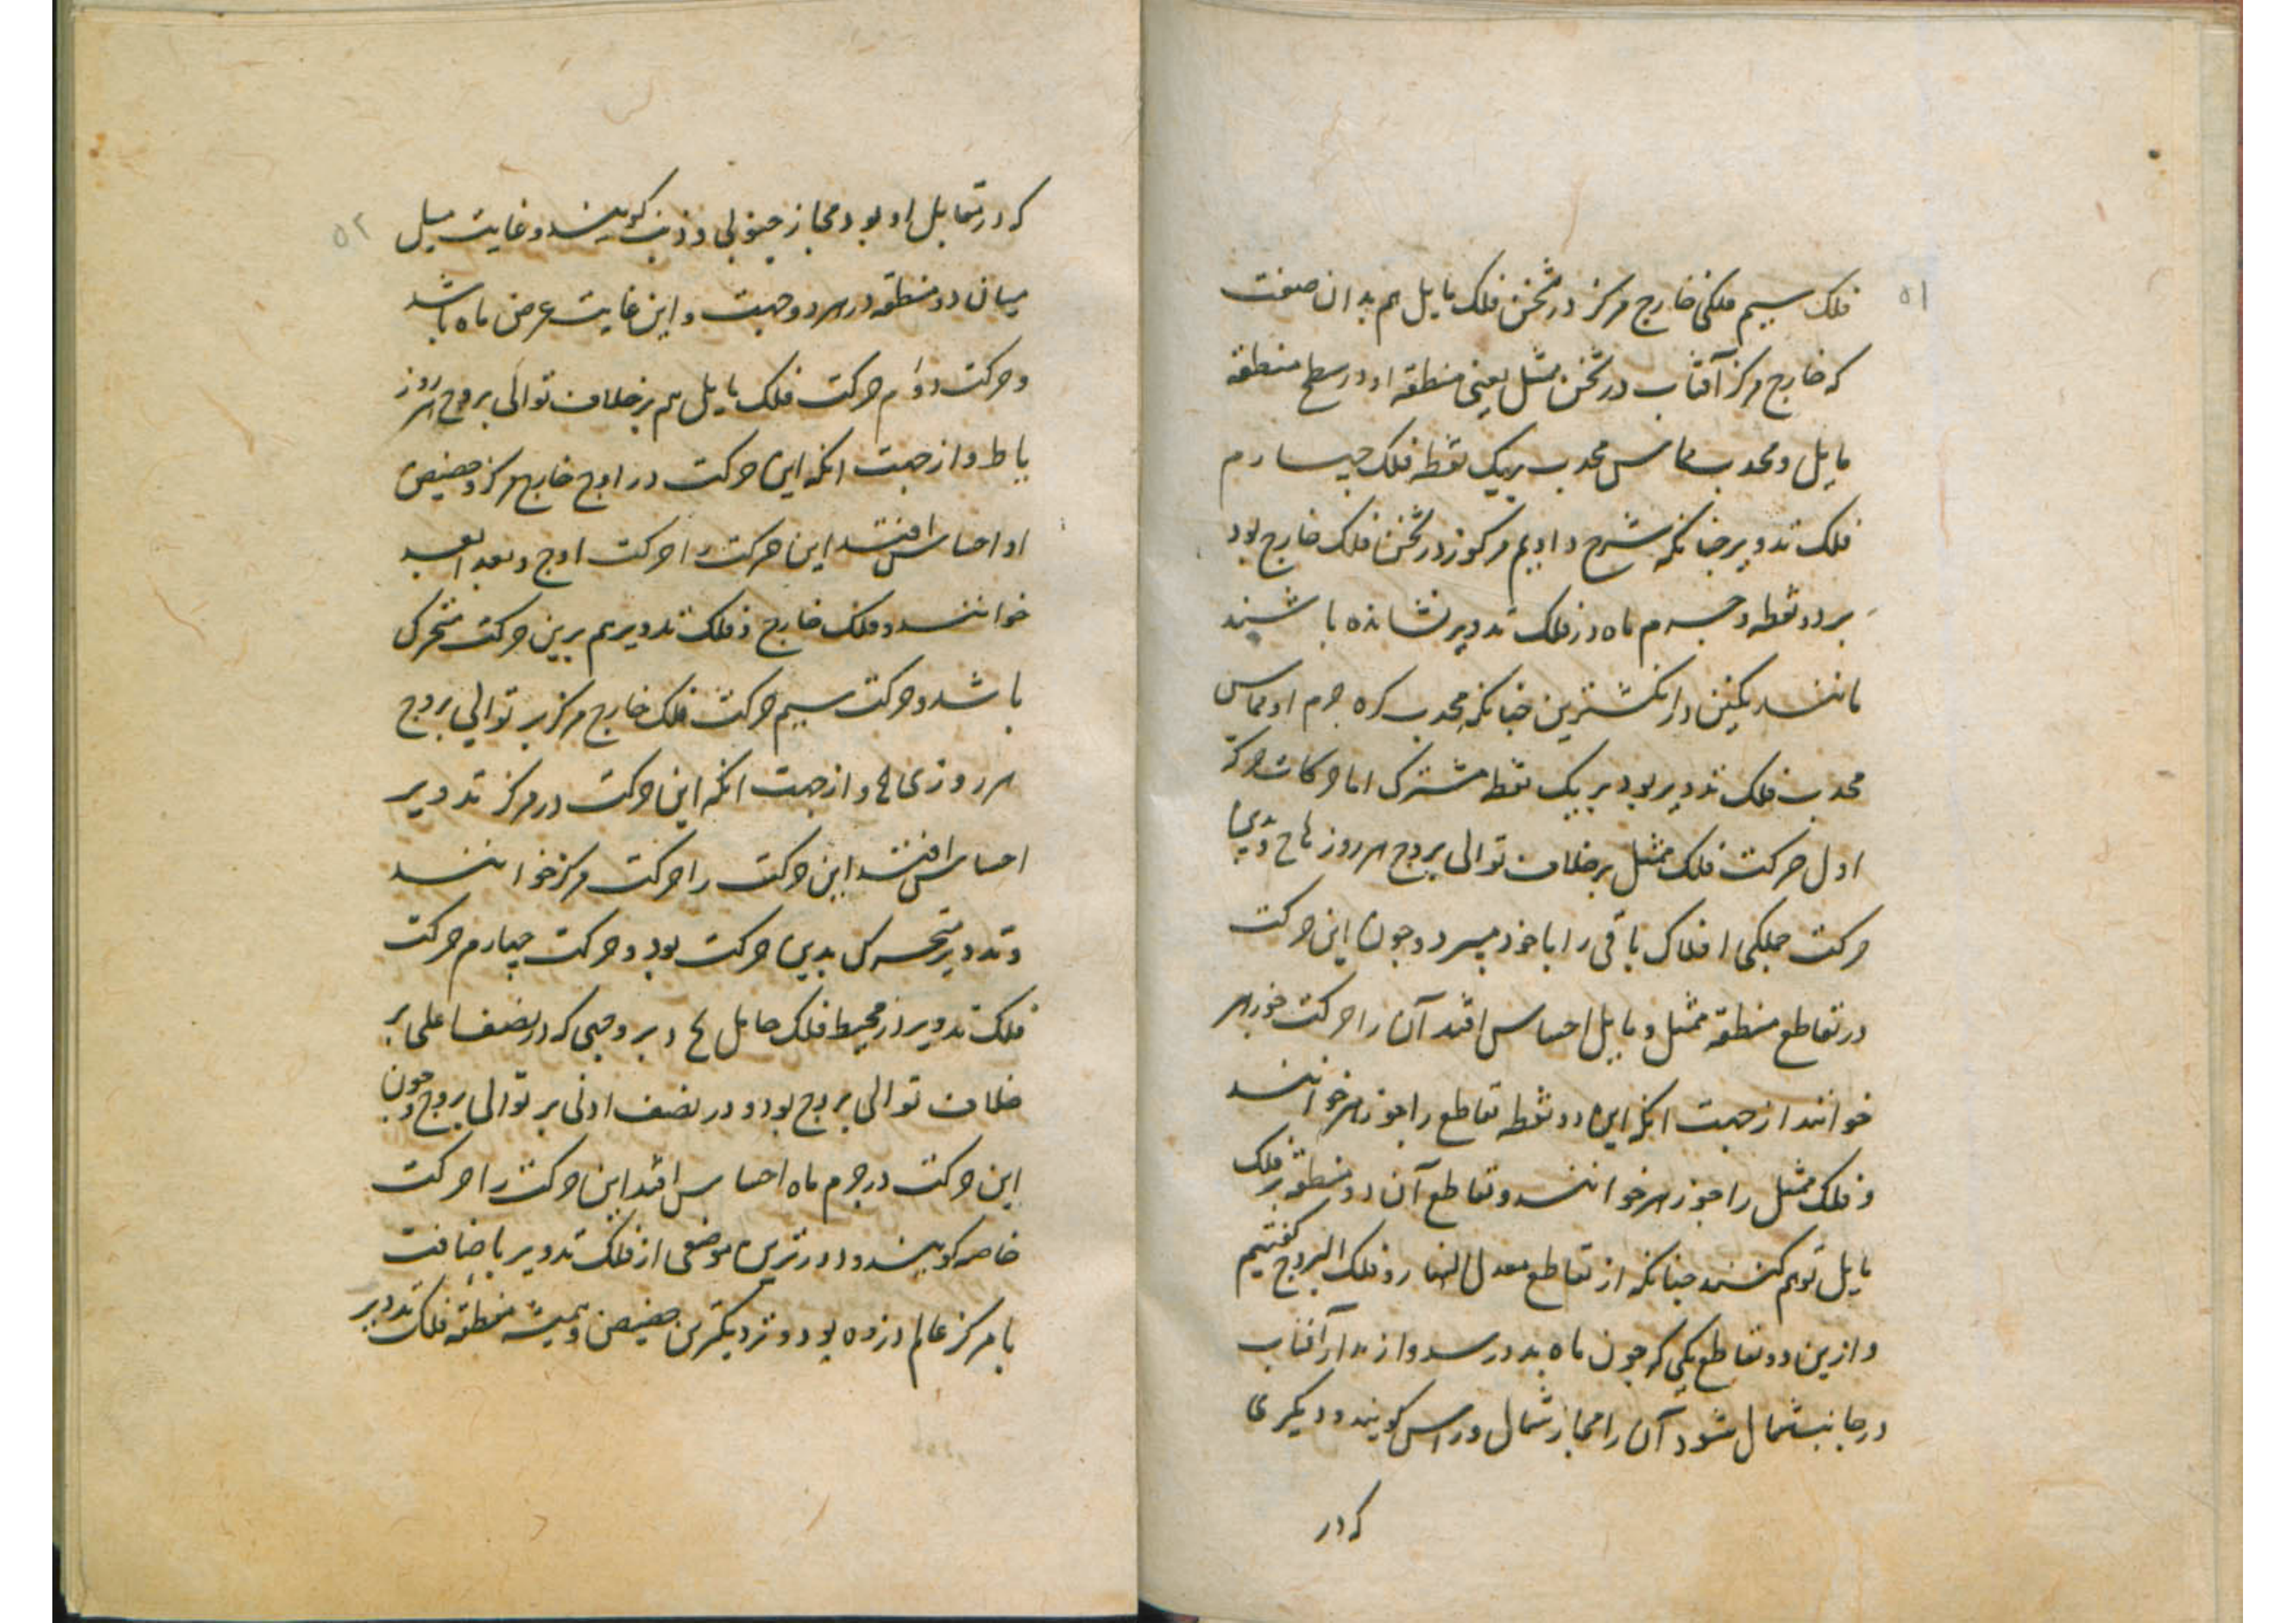 ۵۱
فلک سیم فلکی خارج مرکز در ثخن فلک مایل هم بدان صفت
که خارج مرکز آفتاب در ثخن ممثل یعنی منطقه او در سطح منطقه
مایل و محدب مماس محدب بر یک نقطه فلک چهارم
فلک تدویر چنانکه شرح دادیم مرکوز در ثخن فلک خارج بود
بر دو نقطه و جرم ماه در فلک تدویر نشانده باشند
مانند نکین در انکشترین چنانکه محدب کره جرم او مماس
محدب فلک تدویر بود بر یک نقطه مشترک اما حرکات حرکة
اول حرکت فلک ممثل بر خلاف توالی بروج هر روز و بدین
حرکت جملکی افلاک باقی را با خود میبرد و چون این حرکت
در تقاطع منطقه ممثل و مایل احساس افتد آن را حرکت جوزهر
خوانند از جهت انکه این دو نقطه تقاطع را جوزهر خوانند
و فلک ممثل را جوزهر خوانند و تقاطع آن دو منطقه بر فلک
مایل توهم کنند چنانکه از تقاطع معدل النهار و فلک البروج گفتیم
و ازین دو تقاطع یکی که چون ماه بدو رسد و از مدار آفتاب
در جانب شمال شود آن را مجاز شمال و راس کویند و دیکری
که در
۵۲
که در تقابل او بود مجاز جنوبی و ذنب کویند و غایت میل
میان دو منطقه در هر دو جهت و این غایت عرض ماه باشد
و حرکت دوم حرکت فلک مایل هم بر خلاف توالی بروج هر روز
یا ط و از جهت انکه این حرکت در اوج خارج مرکز و حضیض
او احساس افتد این حرکت را حرکت اوج و بعد ابعد
خوانند و فلک خارج و فلک تدویر هم برین حرکت متحرک
باشد و حرکت سیم حرکت فلک خارج مرکز بر توالی بروج
هر روزی و از جهت انکه این حرکت در مرکز تدویر
احساس افتد این حرکت را حرکت مرکز خوانند
و تدویر متحرک بدین حرکت بود و حرکت چهارم حرکت
فلک تدویر در محیط فلک حامل بر وجهی که در نصف اعلی بر
خلاف توالی بروج بود و در نصف ادنی بر توالی بروج و چون
این حرکت در جرم ماه احساس افتد این حرکت را حرکت
خاصه کویند و دورترین موضعی از فلک تدویر باضافت
با مرکز عالم ذروه بود و نزدیکترین حضیض و همیشه منطقه فلک تدویر